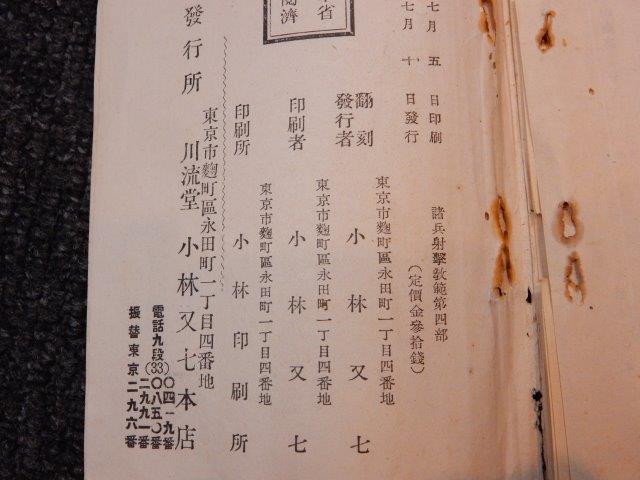 七月五日印刷
七月十日發行
諸兵射擊教範第四部
(定價金參拾錢)
東京市麴町區永田町一丁目四番地
翻刻發行者 小林又七
東京市麴町區永田町一丁目四番地
印刷者 小林又七
東京市麴町區永田町一丁目四番地
印刷所 小林印刷所
省
濟
東京市麴町區永田町一丁目四番地
發行所 川流堂 小林又七本店
電話九段(33)〇四一九番
〇八五〇番
二九九一番
振替東京二九六番